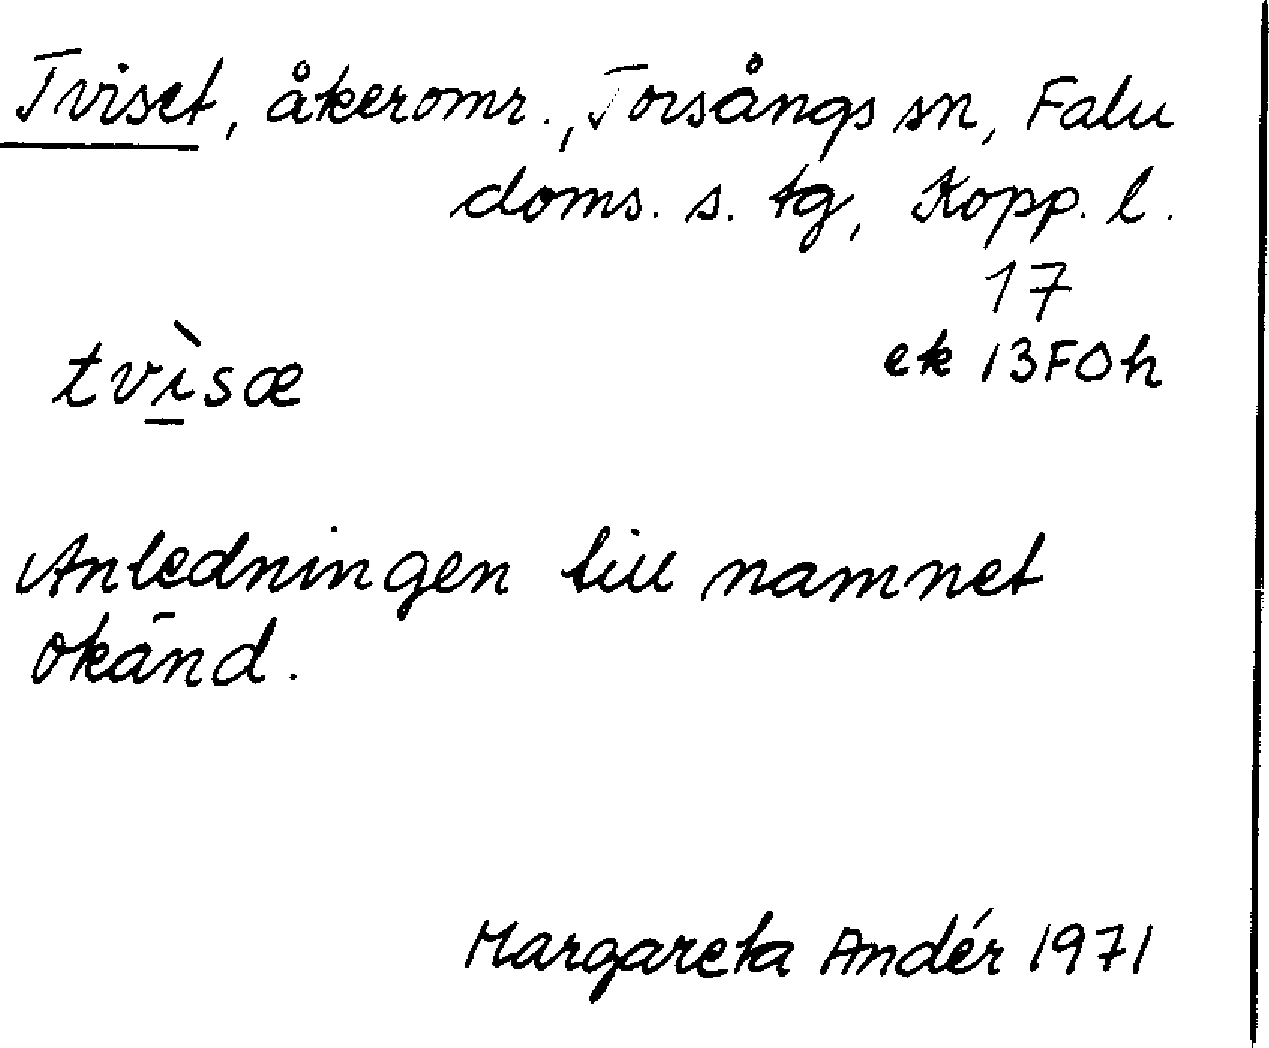 Tviset, åkeromr., Torsångs sn, Falu
doms. s. tg, Kopp. l.
17
tvì̲sæ
ek 13F0h
Anledningen till namnet
okänd.
Margareta Andér 1971